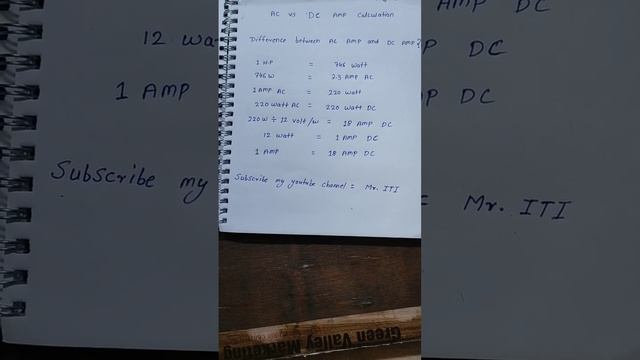 AC vs DC AMP Calculation
Difference between AC AMP and DC AMP?
1 HP = 746 watt
746 W = 2.3 AMP AC
1 AMP AC = 220 watt
220 watt AC = 220 watt DC
220 W ÷ 12 volt/w = 18 AMP DC
12 watt = 1 AMP DC
1 AMP = 18 AMP DC
Subscribe my youtube channel = Mr. ITI
Green Valley Marketing